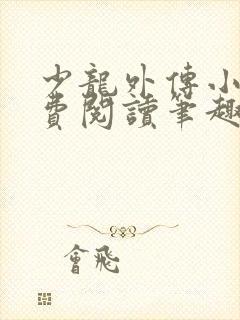 少龍外傳小
費閱讀筆趣
會飛